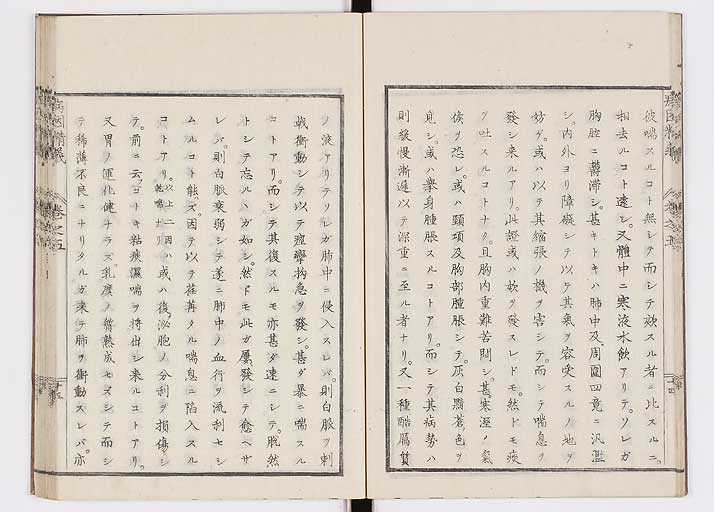 彼喘スルコト無シテ而シテ欬スル者ニ比スルニ。
相去ルコト遠シ。又體中ニ寒液水飲アリテ。ソレガ
胸腔ニ鬱滞シ。甚キトキハ肺中及周圍四竟ニ汎濫
シ。内外ヨリ障礙シテ以テ其氣ヲ容受スルノ地ヲ
妨ゲ。或ハ以テ其縮張ノ機ヲ害シテ。而シテ喘息ヲ
發シ来ルアリ。此證或ハ欬ヲ發スレドモ。然ドモ痰
ヲ吐スルコトナク。且胸内重難苦悶シ。甚寒溼ノ氣
候ヲ恐レ。或ハ頸項及胸部腫脹シテ。灰白黯蒼色ヲ
見シ。或ハ擧身腫脹スルコトアリ。而シテ其病勢ハ
則緩慢漸遲以テ深重ニ至ル者ナリ。又一種酷厲質
十四
病因精義
卷之五
ノ液アリテソレガ肺中ニ侵入スレバ。則白脈ヲ刺
戟衝動シテ以テ痙攣拘急ヲ發シ。甚ダ暴ニ喘スル
コトアリ。而シテ其復スルモ亦甚ダ速ニシテ。脱然
トシテ忘ルヽガ如シ。然ドモ此ガ屢發シテ愈ヘザ
レバ。則白脈衰弱シテ遂ニ肺中ノ血行ヲ流利セシ
ムルコト能ズ。因テ以テ荏苒タル喘息ニ陷入スル
コトアリ。以上二因ハ乾喘ナリ或ハ復泌胞ノ分利ヲ損傷シ
テ。前ニ云ゴトキ粘痰濕喘ヲ將出シ来ルコトアリ。
又胃ノ運化健ナラズ。乳糜ノ醸熟成セズシテ而シ
テ稀薄不良ニナリタルガ来テ肺ヲ衝動スレバ。亦
十五